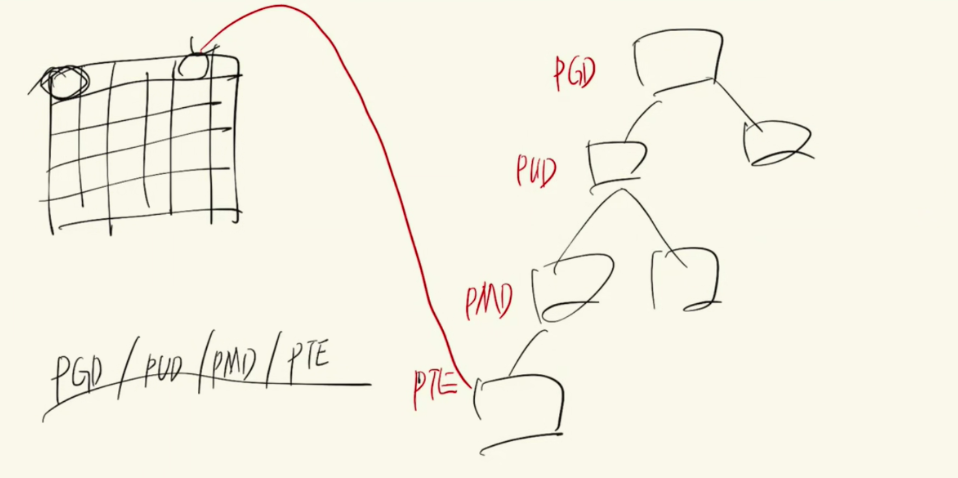 PGD
PUD
PMD
PTE
PGD / PUD / PMD / PTE